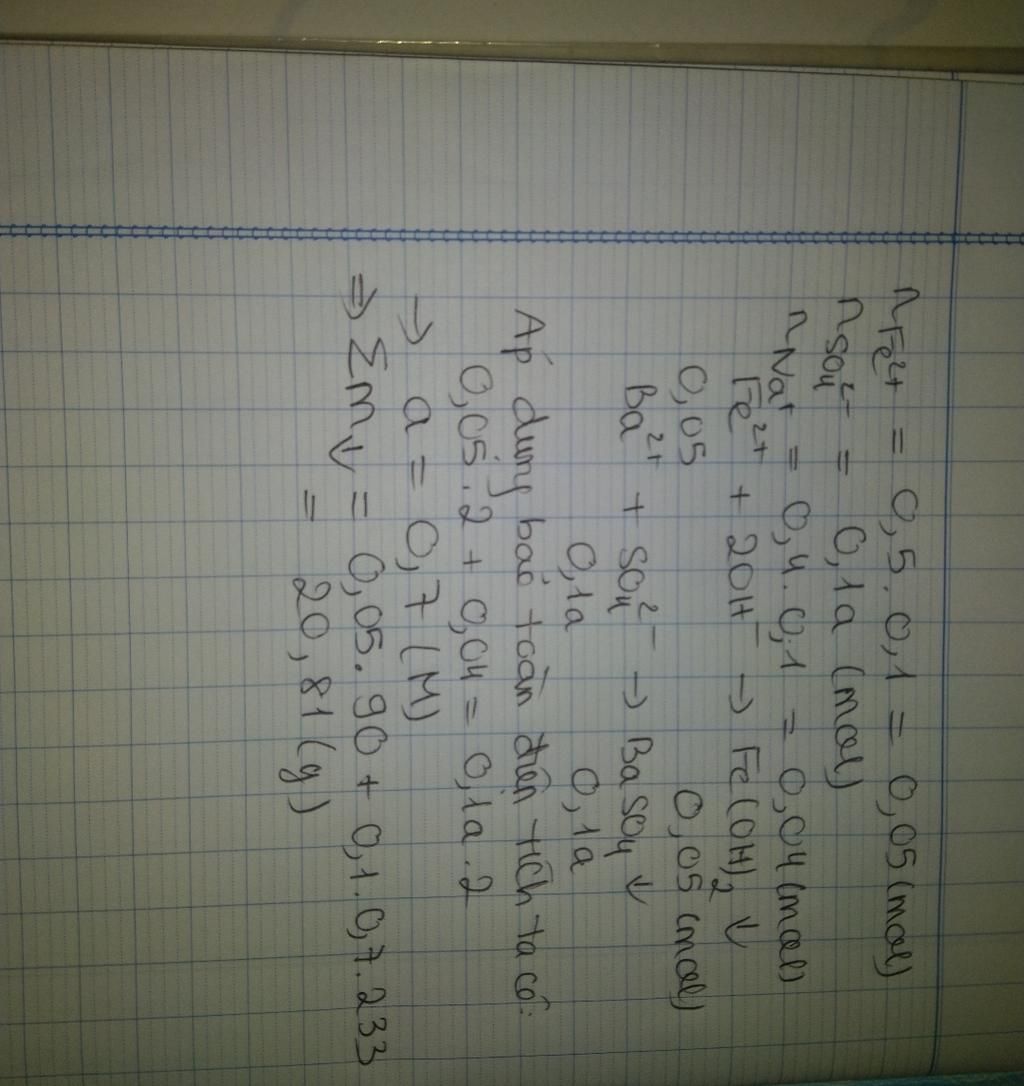 nFe²⁺ = 0,5 . 0,1 = 0,05 (mol)
nSO₄²⁻ = 0,1a (mol)
nNa⁺ = 0,4 . 0,1 = 0,04 (mol)
Fe²⁺ + 2OH⁻ → Fe(OH)₂ ↓
0,05 0,05 (mol)
Ba²⁺ + SO₄²⁻ → BaSO₄ ↓
0,1a 0,1a
Áp dụng bảo toàn điện tích ta có:
0,05 . 2 + 0,04 = 0,1a . 2
→ a = 0,7 (M)
⇒ Σm↓ = 0,05 . 90 + 0,1 . 0,7 . 233
= 20,81 (g)